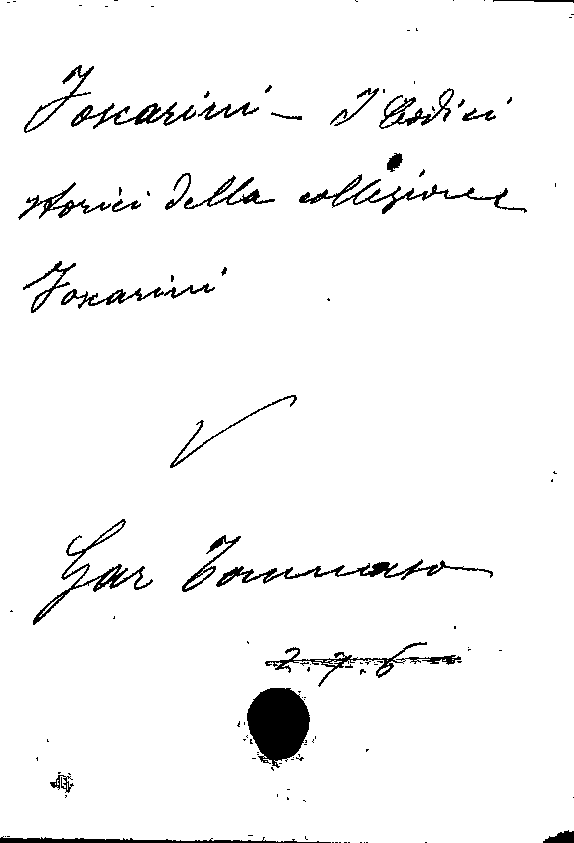 Foscarini - I Codici
storici della collezione
Foscarini
Gar Tommaso
2.7.6